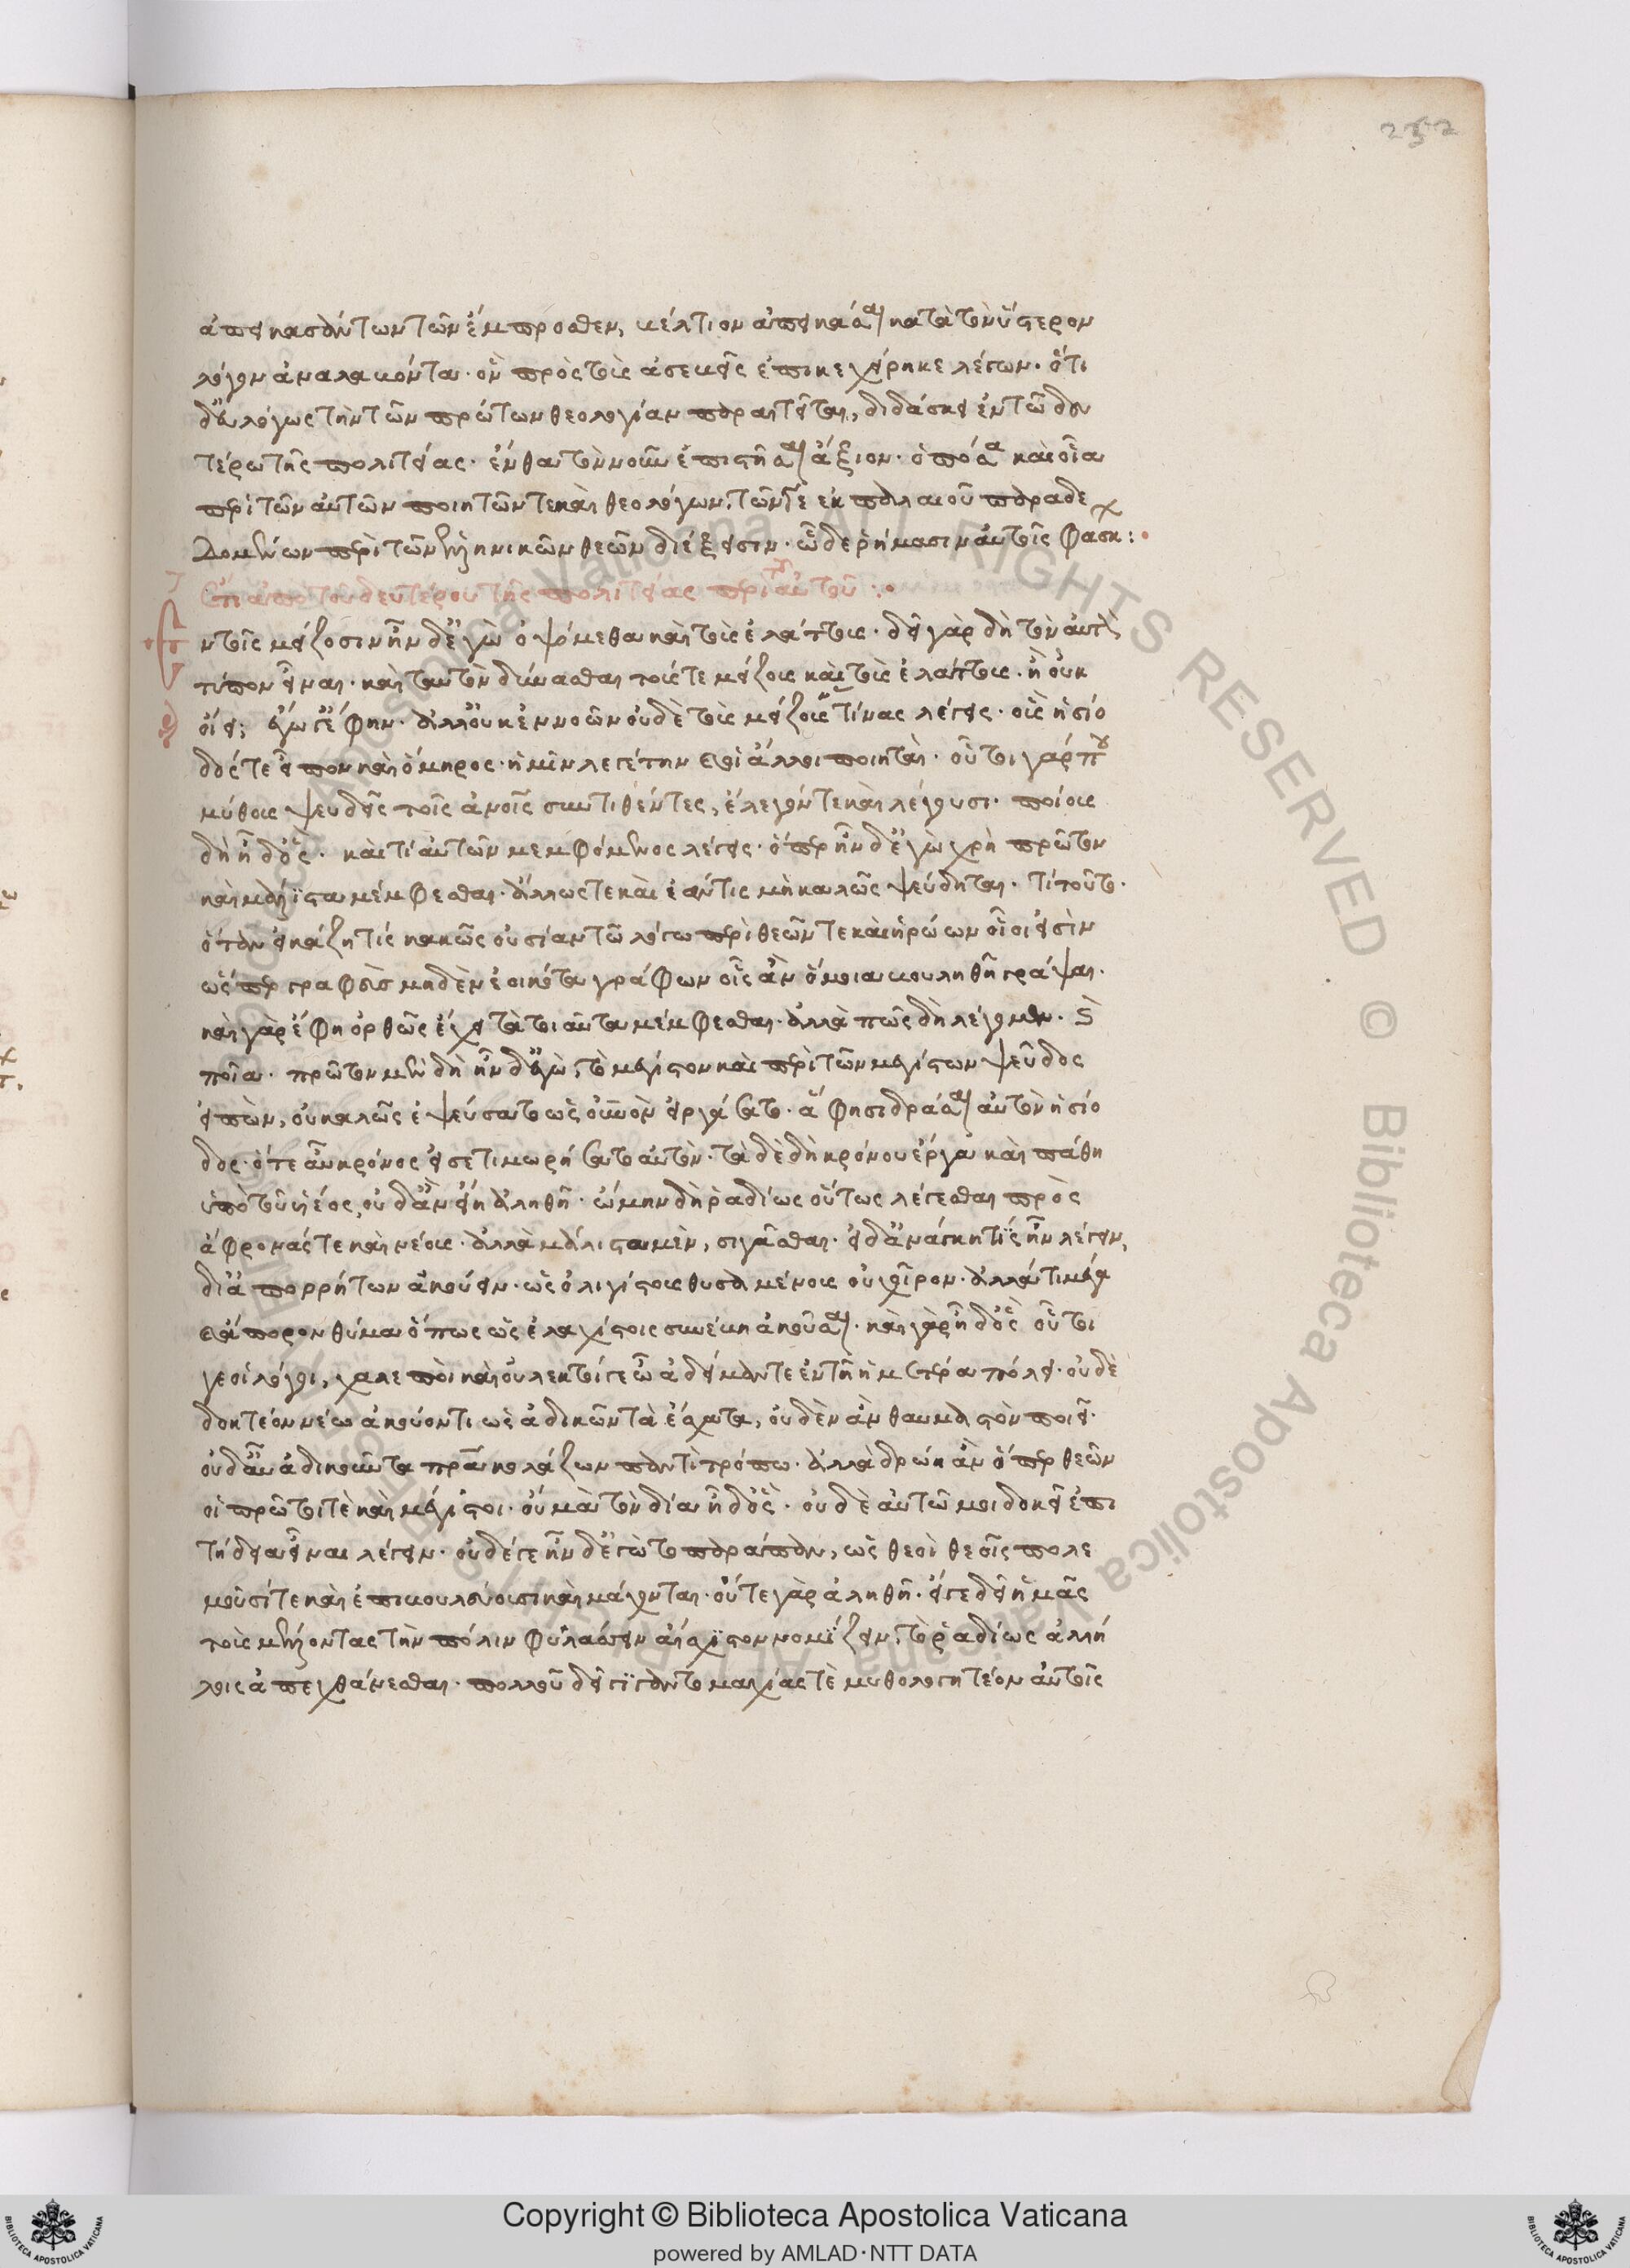 ἀπεικασάντων τῶν ἔμπροσθεν, βέλτιον ἀπεικάσαι κατὰ τὸν ὕστερον
λόγον ἀναλαβόντα· ὃν πρὸς τοὺς ἀσεβεῖς ἐπικεχείρηκε λέγων· ὅτι
δ' εὐλόγως τὴν τῶν πρώτων θεολογίαν παραιτεῖται, διδάσκει ἐν τῶ δευ
τέρω τῆς πολιτείας· ἔνθα τὸν νοῦν ἐπιστῆσαι ἄξιον· ὁπόσα καὶ οἷα
περὶ τῶν αὐτῶν ποιητῶν τε καὶ θεολόγων, τῶν τε ἐκ παλαιοῦ παραδε
δομένων περὶ τῶν ἑλληνικῶν θεῶν διέξεισιν· ὧδε ῥήμασιν αὐτοῖς φάσκ:
ἀπὸ τοῦ δευτέρου τῆς πολιτείας περὶ αὐτοῦ:
ν τοῖς μείζοσιν ἦν δ' ἐγὼ ὀψόμεθα καὶ τοὺς ἐλάττους· δεῖ γὰρ δὴ τὸν αὐτὸν
τύπον εἶναι· καὶ ταυτὸν δύνασθαι τούς τε μείζους καὶ τοὺς ἐλάττους· ἢ οὐκ
οἴει; ἔγωγ' ἔφην· ἀλλ' οὐκ ἐννοῶν οὐδὲ τοὺς μείζους τίνας λέγεις· οὓς ἡσίο
δός τε εἶπον καὶ ὅμηρος· ἡμῖν λεγέτην καὶ οἱ ἄλλοι ποιηταὶ· οὗτοι γάρ που
μύθους ψευδεῖς τοῖς ἀνοις συντιθέντες, ἔλεγόν τε καὶ λέγουσι· ποίους
δὴ ἦ δ' ὃς· καὶ τί αὐτῶν μεμφόμενος λέγεις· ὅπερ ἦν δ' ἐγὼ χρὴ πρῶτον
καὶ μάλιστα μέμφεσθαι· ἄλλως τε καὶ ἐάν τις μὴ καλῶς ψεύδηται· τί τοῦτο·
ὅταν εἰκάζη τίς κακῶς οὐσίαν τῶ λόγω περὶ θεῶν τε καὶ ἡρώων οἷοί εἰσὶν
ὥσπερ γραφεὺς μηδὲν ἐοικότα γράφων οἷς ἂν ὅμοια βουληθῆ γράψαι·
καὶ γὰρ ἔφη ὀρθῶς ἔχει τὰ τοιαῦτα μέμφεσθαι· ἀλλὰ πῶς δὴ λέγομεν· καὶ
ποῖα· πρῶτον μὲν δὴ ἦν δ' ἐγὼ, τὸ μέγιστον καὶ περὶ τῶν μεγίστων ψεῦδος
εἰπὼν, οὐ καλῶς ἐψεύσατο ὡς οὐνὸν εἰργάσατο· ἅ φησι δρᾶσαι αὐτὸν ἡσίο
δος· ὅτε αὖ κρόνος ὡς ἐτιμωρήσατο αὐτὸν· τὰ δὲ δὴ κρόνου ἔργα καὶ πάθη
ὑπὸ τοῦ υἱέος, οὐδ' ἂν εἴη ἀληθῆ· ὤμην δὴ ῥαδίως οὕτως λέγεσθαι πρὸς
ἄφρονάς τε καὶ νέους· ἀλλὰ μάλιστα μὲν, σιγᾶσθαι· εἰ δ' ἀνάγκη τὶς ἦν λέγειν,
δι' ἀπορρήτων ἀκούειν· ὡς ὀλιγίστους θυσαμένους οὐ χοῖρον· ἀλλά τι μέγα
καὶ ἄπορον θύμα ὅπως ὡς ἐλαχίστοις συνέβη ἀκοῦσαι· καὶ γὰρ ἦ δ' ὃς οὗτοι
γε οἱ λόγοι, χαλεποὶ καὶ οὐ λεκτοί γ' ὦ ἀδείμαντε ἐν τῆ ἡμετέρα πόλει· οὐδὲ
λεκτέον νέω ἀκούοντι ὡς ἀδικῶν τὰ ἔσχατα, οὐδὲν ἂν θαυμαστὸν ποιεῖ·
οὐδ' αὖ ἀδικοῦντα πρα κολάζων παντὶ τρόπω· ἀλλὰ δρώη ἂν ὅπερ θεῶν
οἱ πρῶτοί τε καὶ μέγιστοι· οὐ μὰ τὸν δία ἦ δ' ὃς· οὐδὲ αὐτῶ μοι δοκεῖ ἐπι
τήδεια εἶναι λέγειν· οὐδέ γε ἦν δ' ἐγὼ τὸ παράπαν, ὡς θεοὶ θεοῖς πολε
μοῦσί τε καὶ ἐπιβουλεύουσι καὶ μάχονται· οὔτε γὰρ ἀληθῆ· εἴγε δεῖ ἡμᾶς
τοὺς μέλλοντας τὴν πόλιν φυλάσσειν αἴσχιστον νομίζειν, τὸ ῥαδίως ἀλλή
λοις ἀπεχθάνεσθαι· πολλοῦ δεῖ γιγαντομαχίας τὲ μυθολογητέον αὐτοῖς